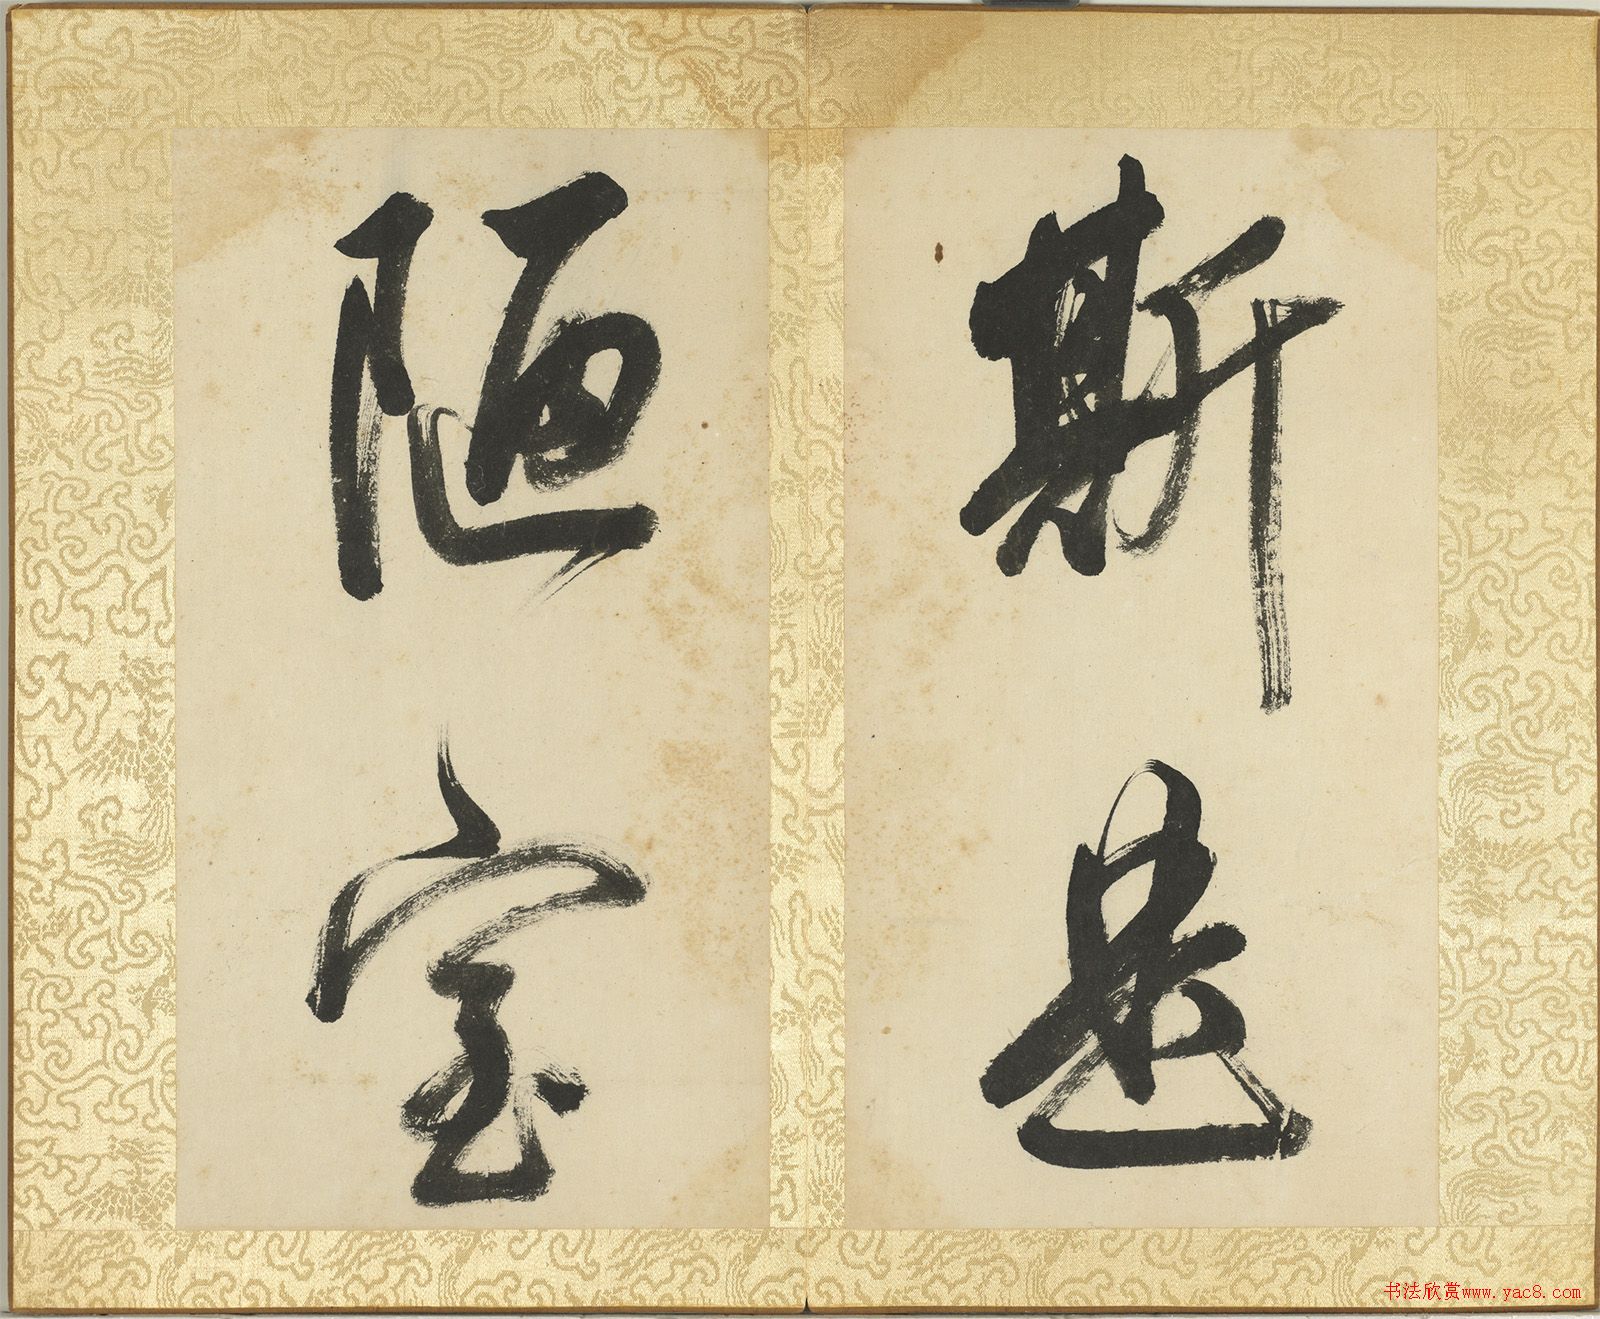 斯是
陋室
书法欣赏www.yac8.com